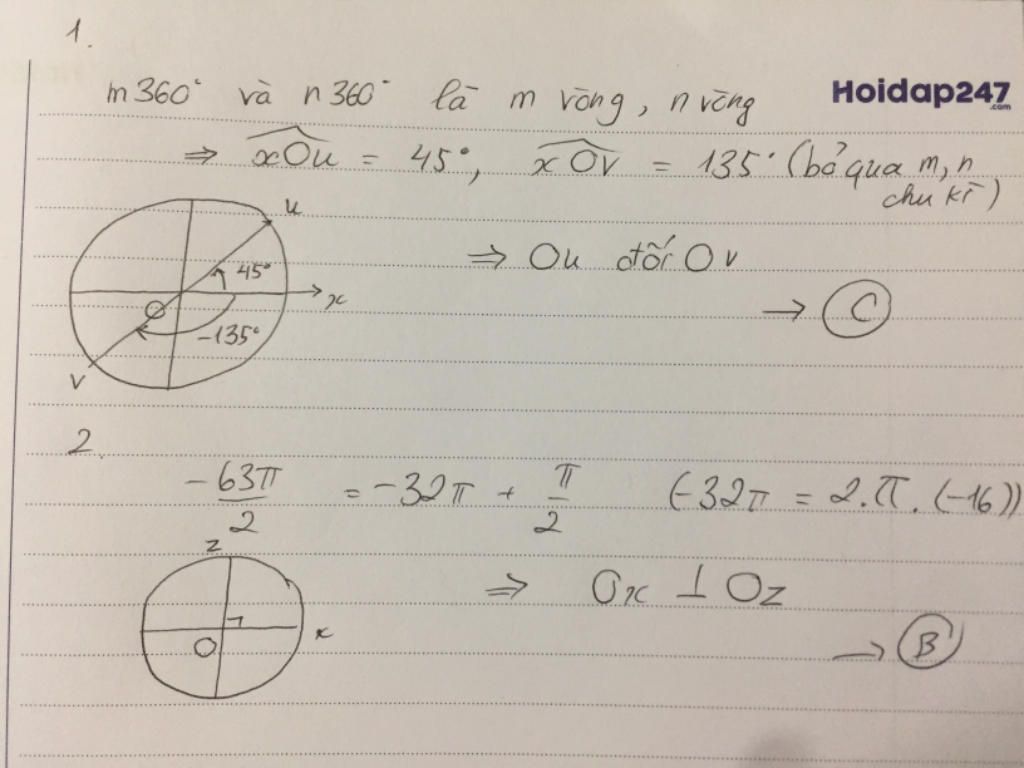 1.
m360° và n360° là m vòng, n vòng
Hoidap247
.com
⇒ xOu = 45°, xOv = 135° (bỏ qua m, n
chu kì)
u
45°
x
O
-135°
v
⇒ Ou đối Ov
→ C
2.
-63π/2 = -32π + π/2 (-32π = 2.π.(-16))
z
x
O
⇒ Ox ⊥ Oz
→ B